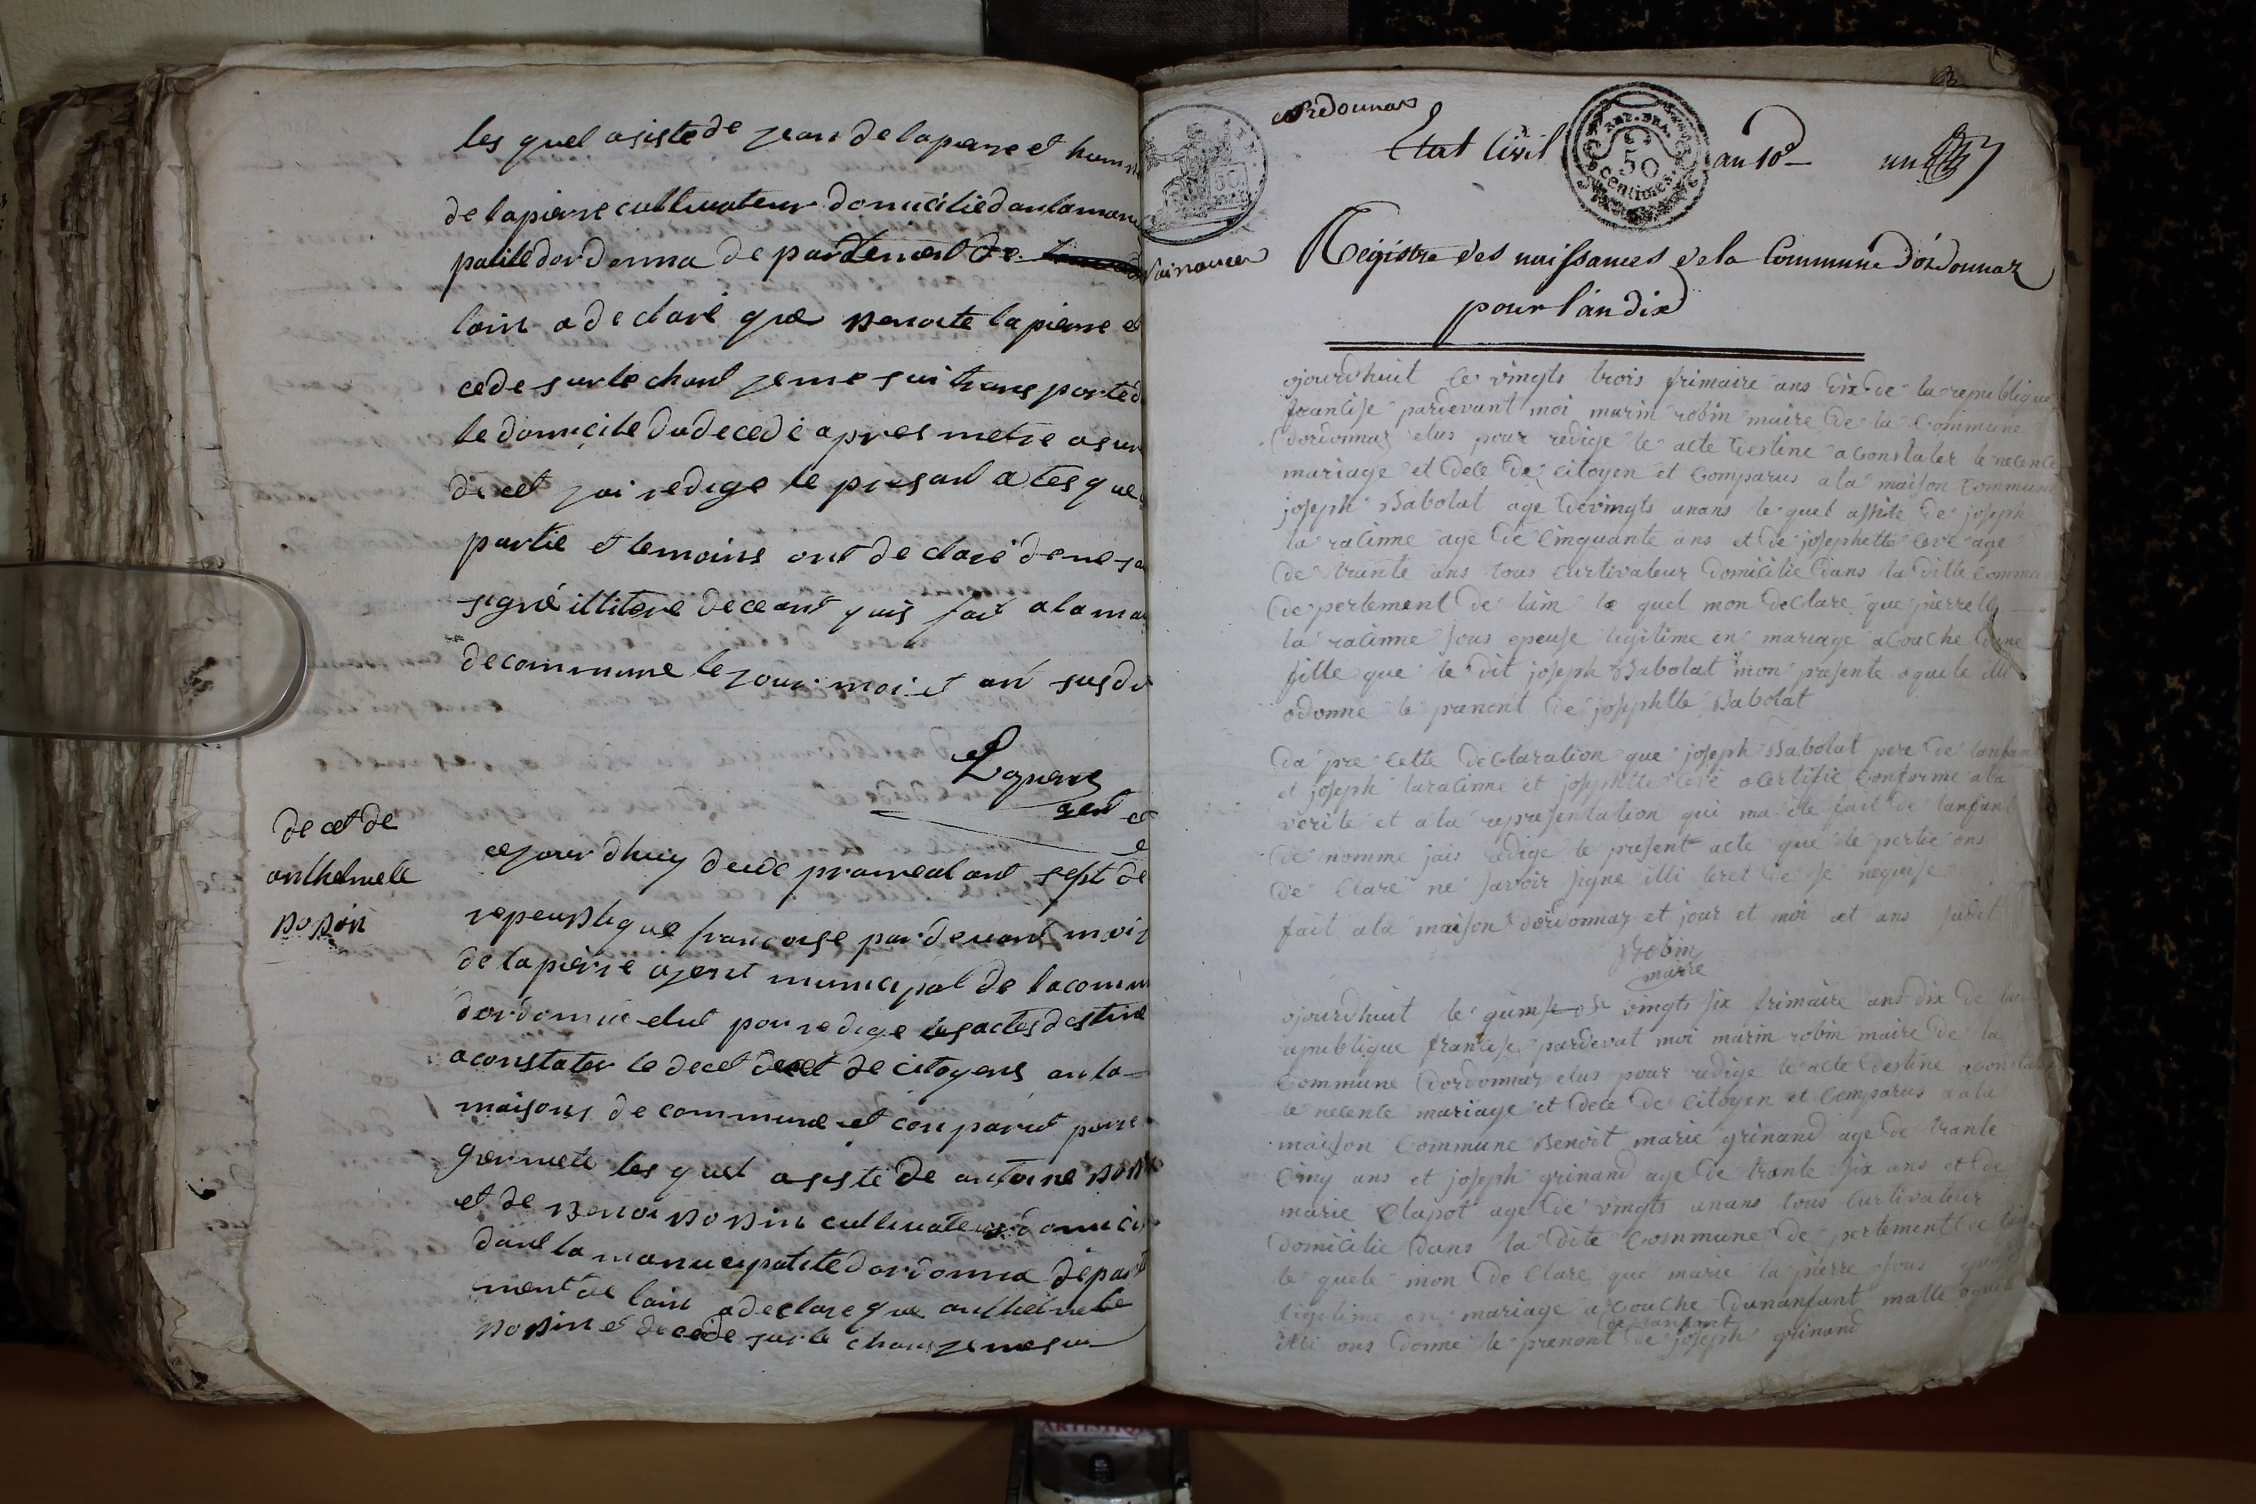 les quel asiste de jean de lapierre et
de lapierre cultivateur domicilie dan la
palite dordonna de partement de
lain a declaré que benoite lapierre
cede sur le chant je me sui trans porté
le domicile du decede apres metre asur
decet jai redige le presant a tes que
partie et temoins ont declaré de ne
signé illitere de ceant quis fait a la
de commune le jour moi et an susdi
Lapierre
agent
decet de
anthelmete
bobin
ce jour dhuy deuce prairéal ant sept de
repeublique francoise par devant moi
de lapierre ajent municipal de la comm
dordonna elut pour redige les actes destiné
a constater le decet decet de citoyens an la
maisons de commune et conparut pierre
les quel asiste de antoine
et de benoi bobin cultivateur domici
dant la manucipatité dordonna depart
ment de lain a declare que anthelmete
bobin et decede sur le chant je me sui
ordonnas
État Civil
REP. FRA.
50
centimes
an 10e
un
Naissances
Registre des naissances de la Commune d'ordonnaz
pour l'an dix
ojourdhuit le vingts trois frimaire ans dix de la republique
francise pardevant moi marin robin maire de la commune
dordonnaz elus pour redige le acte destine a constater le necence
mariage et dece de citoyen et comparus a la maison commune
joseph Babolat age de vingts unans le quel assite de joseph
la racinne age de cinquante ans et de josephette ceve age
de trante ans tous curtivateur domicilie dans la ditte comma
de pertement de lain le quel mon declare que pierrette
la racinne sous epeuse legitime en mariage acouche dune
fille que le dit joseph Babolat mon presente aquele illi
odonne le prenont de josephtte Babolat
da pre cette declaration que joseph Babolat pere de lanfant
et joseph laracinne et josephtte ceve a certifie conforme a la
verite et a la representation qui ma ete fait de lanfant
de nomme jais redige le present acte que le pertie ons
de clare ne savoir syne illi teret de se
fait a la maison dordonnaz et jour et moi et ans sudit
Robin
maire
ojourdhuit le quinse vingts six frimaire ans dix de la
republique francise pardevat moi marin robin maire de la
commune dordonnaz elus pour redige le acte destine a constater
le necence mariage et dece de citoyen et comparus a la
maison commune Benoit marie grinand age de trante
cinq ans et joseph grinand age de trante six ans et de
marie clapot age de vingts unans tous curtivateur
domicilie dans la dite commune de pertement de lain
le quele mon de clare que marie la pierre sous
ligitime en mariage acouche dunanfant malle
de lanfant
illi ons donne le prenont de joseph grinand